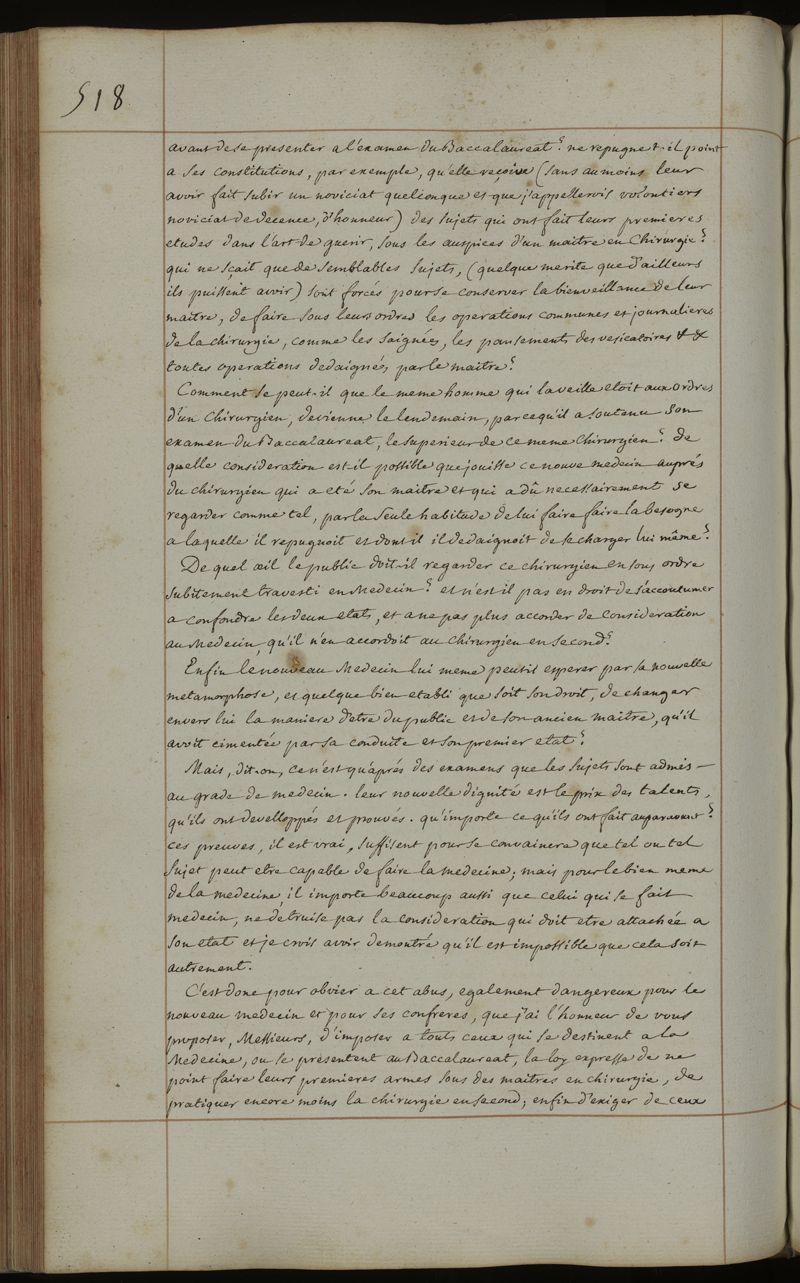 518
avant de se presenter a l'examen du Baccalaureat? ne repugne t-il point
a ses constitutions, par exemple, qu'elle reçoive (sans au moins leur
avoir fait subir un noviciat quelconque et que j'appellerois volontiers
noviciat de decence, d'honneur) des sujets qui ont fait leurs premieres
etudes dans l'art de guerir, sous les auspices d'un maitre en Chirurgie?
qui ne sçait que de semblables sujets, (quelque merite que d'ailleurs
ils puissent avoir) sont forcés pour se conserver la bienveillance de leur
maitre, de faire sous leurs ordres les operations communes et journalieres
de la chirurgie, comme les saignées, les pansements des vesicatoires & &
toutes operations dedaignées par le maitre?
Comment se peut-il que le meme homme qui la veille etoit aux ordres
d'un Chirurgien, devienne le lendemain, parcequ'il a soutenu son
examen du Baccalaureat, le superieur de ce meme Chirurgien? de
quelle consideration est-il possible que jouisse ce nouve medecin auprés
du chirurgien qui a eté son maitre et qui a dû necessairement se
regarder comme tel, par la seule habitude de lui faire faire la besogne
a laquelle il repugnoit et dont il il dedaignoit de se charger lui même?
De quel œil le public doit-il regarder ce chirurgien en sous ordre
subitement travesti en Medecin? et n'est il pas en droit de s'accoutumer
a confondre les deux etats, et a ne pas plus accorder de consideration
au Medecin, qu'il n'en accordoit au Chirurgien en second?
Enfin le nouveau Medecin lui meme peut il esperer par sa nouvelle
metamorphose, et quelque bien etabli que soit son droit, de changer
envers lui la maniere d'etre du public et de son ancien maitre, qu'il
avoit cimentée par sa conduite et son premier etat?
Mais, dit-on, ce n'est qu'aprés des examens que les sujets sont admis
au grade de medecin. leur nouvelle dignité est le prix des talents,
qu'ils ont develloppés et prouvés. qu'importe ce qu'ils ont fait auparavant?
ces preuves, il est vrai, suffisent pour se convaincre que tel ou tel
sujet peut etre capable de faire la medecine; mais pour le bien meme
de la medecine, il importe beaucoup aussi que celui qui se fait
medecin, ne detruise pas la consideration qui doit etre attachée a
son etat et je crois avoir demontré qu'il est impossible que cela soit
autrement.
C'est donc pour obvier a cet abus, egalement dangereux pour le
nouveau medecin et pour ses confreres, que j'ai l'honneur de vous
proposer, Messieurs, d'imposer a touts ceux qui se destinent a la
Medecine, ou se présentent au Baccalaureat, la loy expresse de ne
point faire leurs premieres armes sous des maitres en chirurgie, de
pratiquer encore moins la chirurgie en second; enfin d'exiger de ceux